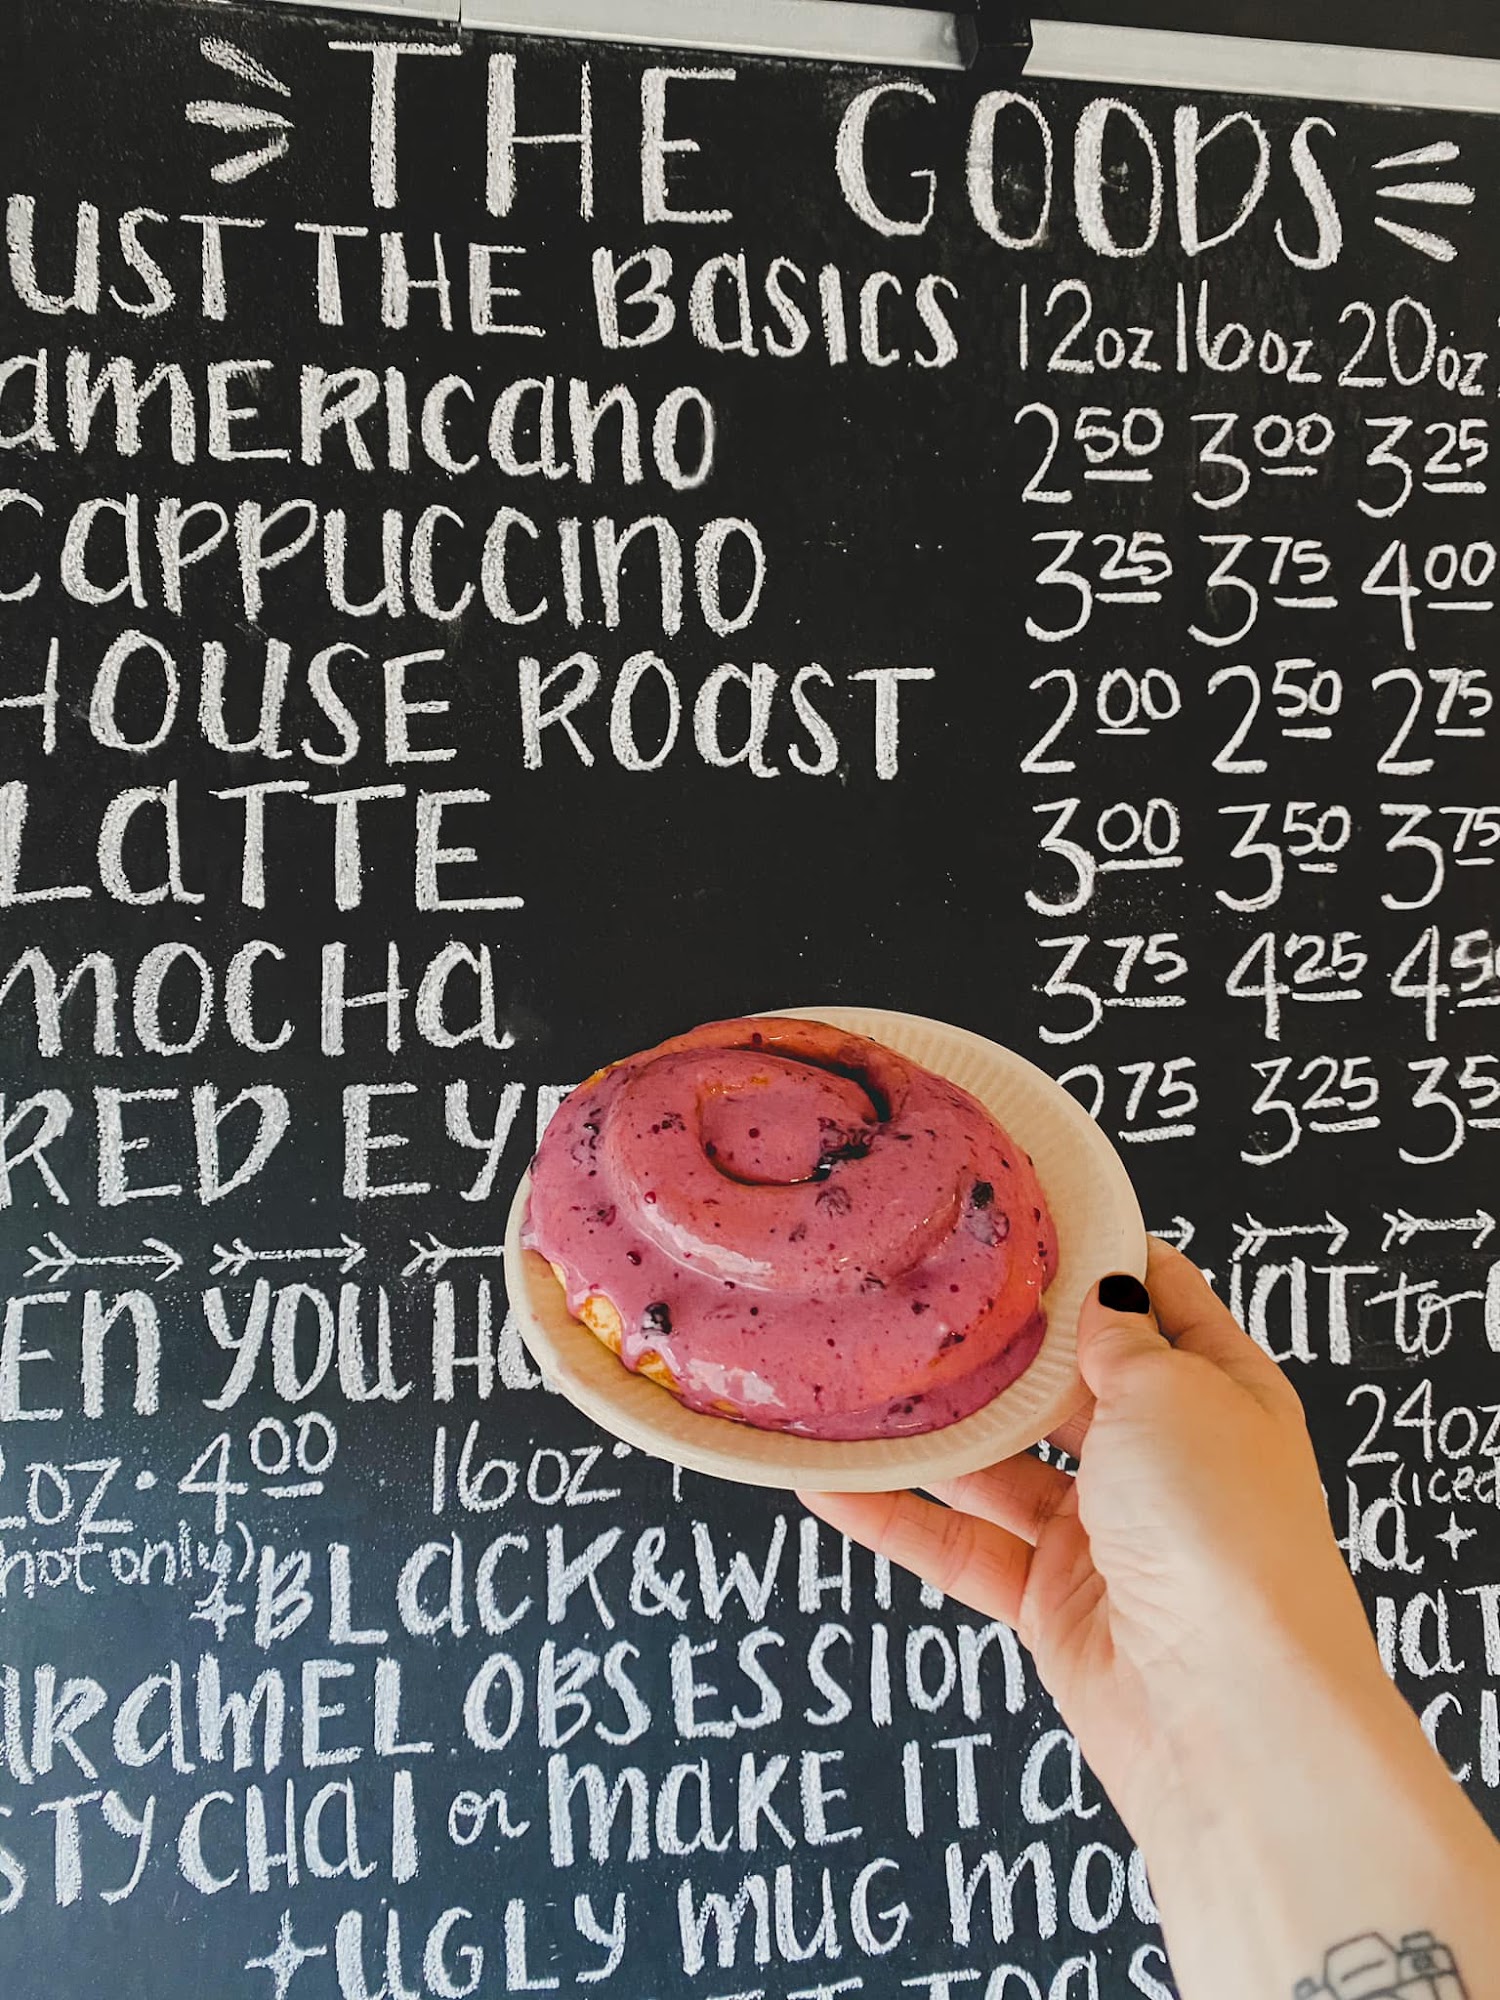 THE GOODS
UST THE BASICS 12oz 16oz 20oz
AMERICANO 2.50 3.00 3.25
CAPPUCCINO 3.25 3.75 4.00
HOUSE ROAST 2.00 2.50 2.75
LATTE 3.00 3.50 3.75
MOCHA 3.75 4.25 4.50
RED EYE 75 3.25 3.5
EN YOU HA HAT to
2oz • 4.00 16oz • 24oz
(not only) (iced
BLACK & WHI
ARAMEL OBSESSION
STY CHAI or MAKE IT A
UGLY MUG MO